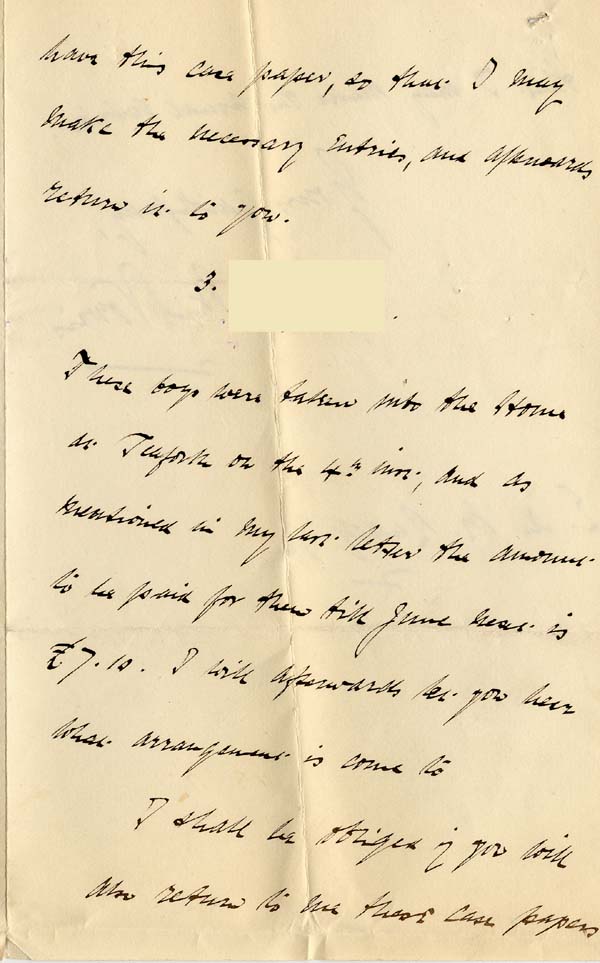 have this case paper, so that I may
make the necessary Entries, and afterwards
return it to you.
3.
These boys were taken into the Home
at Seaforth on the 4th inst, and as
mentioned in my last letter the amount
to be paid for them till June next is
£7.10. I will afterwards let you hear
what arrangement is come to
I shall be obliged if you will
also return to me these case papers